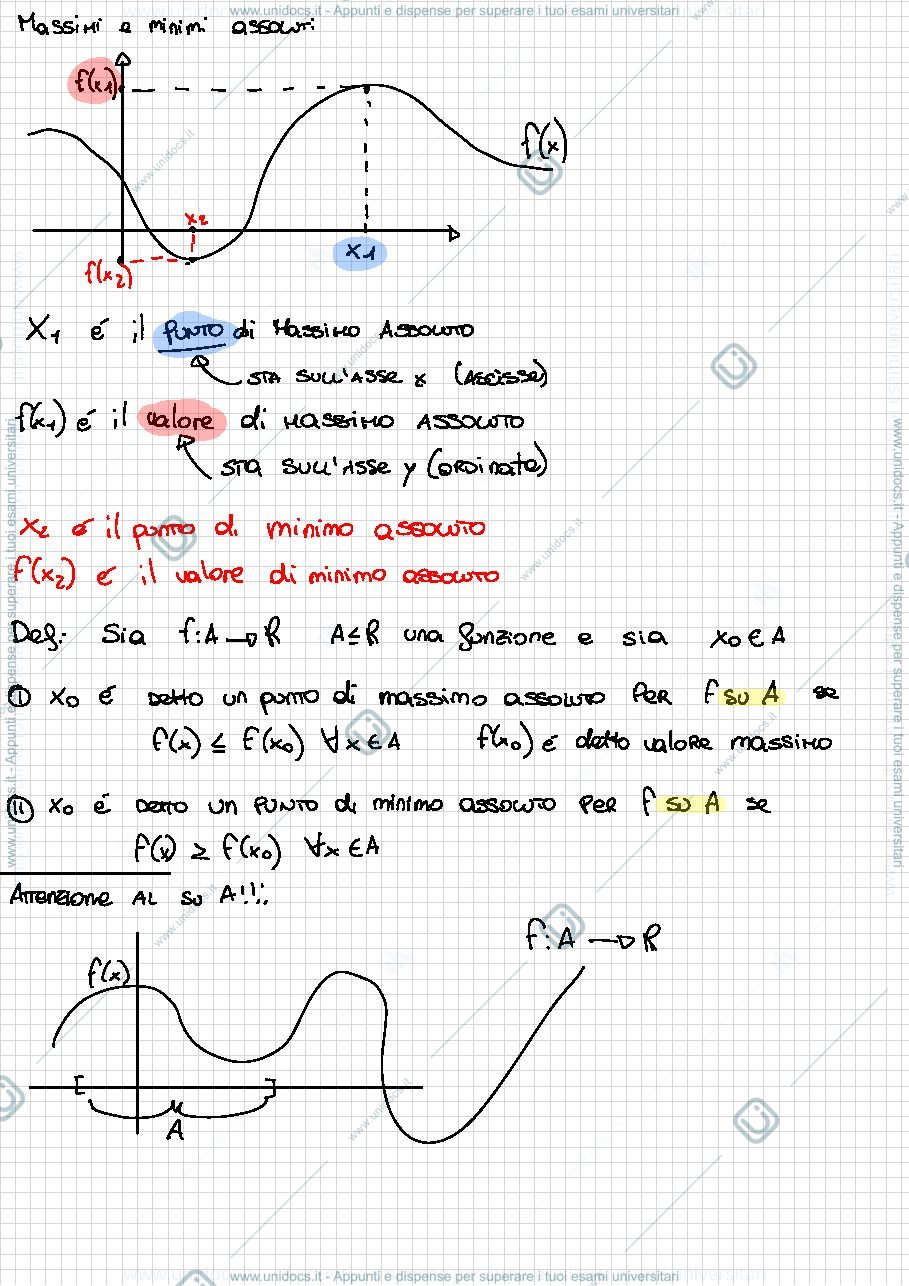 www.unidocs.it - Appunti e dispense per superare i tuoi esami universitari
Massimi e minimi assoluti
f(x1)
f(x)
x2
x1
f(x2)
X1 é il PUNTO di Massimo Assoluto
STA SULL'ASSE x (ASCISSE)
f(x1) é il valore di MASSIMO ASSOLUTO
STA SULL'ASSE y (ORDINATE)
x2 é il punto di minimo assoluto
f(x2) é il valore di minimo assoluto
Def: Sia f: A → R A ≤ R una funzione e sia x0 ∈ A
I x0 é detto un punto di massimo assoluto PER f su A se
f(x) ≤ f(x0) ∀x ∈ A f(x0) é detto valore massimo
II x0 é detto un PUNTO di minimo assoluto PER f su A se
f(x) ≥ f(x0) ∀x ∈ A
Attenzione AL su A!!!
f: A → R
f(x)
[ ]
A
www.unidocs.it - Appunti e dispense per superare i tuoi esami universitari